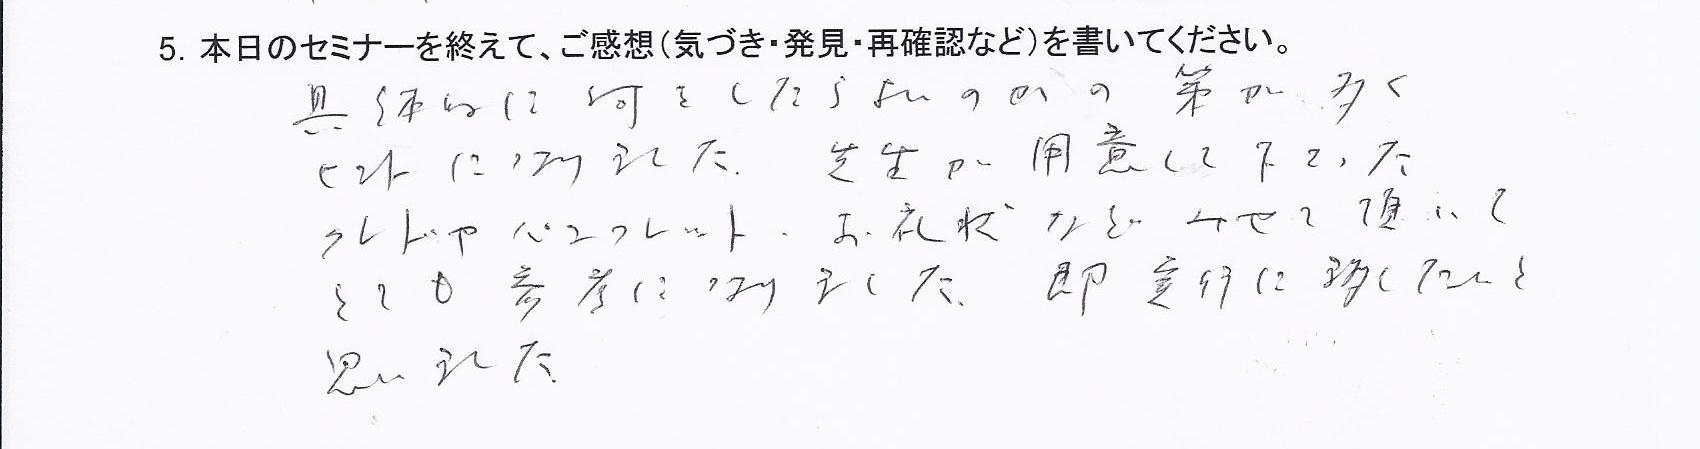 5. 本日のセミナーを終えて、ご感想（気づき・発見・再確認など）を書いてください。
具体的に何をしたらよいのかの策が多く
ヒントになりました. 先生が用意して下さった
クレドやパンフレット. お礼状などみせて頂いて
とても参考になりました. 即実行に移したいと
思いました.